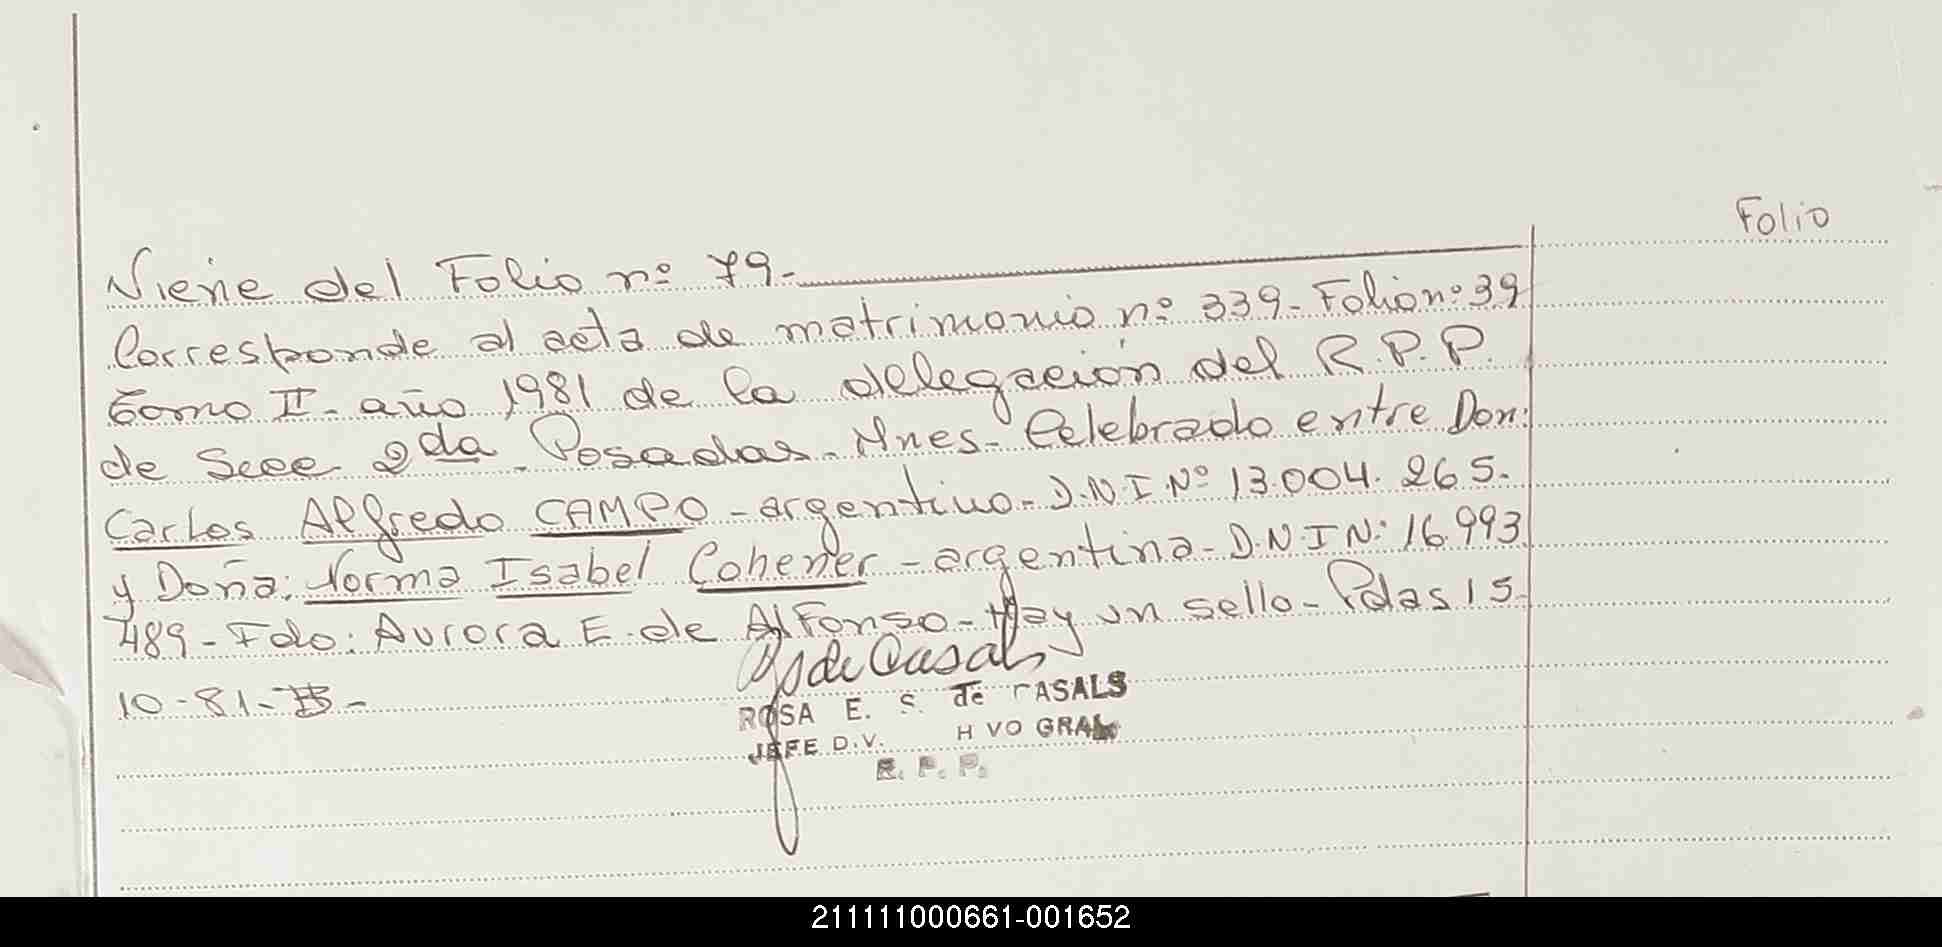 Folio
Viene del Folio nº 79-
Corresponde al acta de matrimonio nº 339- Folio nº 39
tomo II- año 1981 de la delegación del R.P.P.
de Secc 2da. Posadas- Mnes- Celebrado entre Don:
Carlos Alfredo CAMPO - argentino- D.N.I Nº 13.004.265-
y Doña: Norma Isabel Cohener - argentina- D.N.I N: 16.993
489- Fdo: Aurora E. de Alfonso- Hay un sello- Pdas 15-
10-81-
de Casals
ROSA E. S. de CASALS
JEFE DIV. H VO GRAL
R. P. P.
211111000661-001652